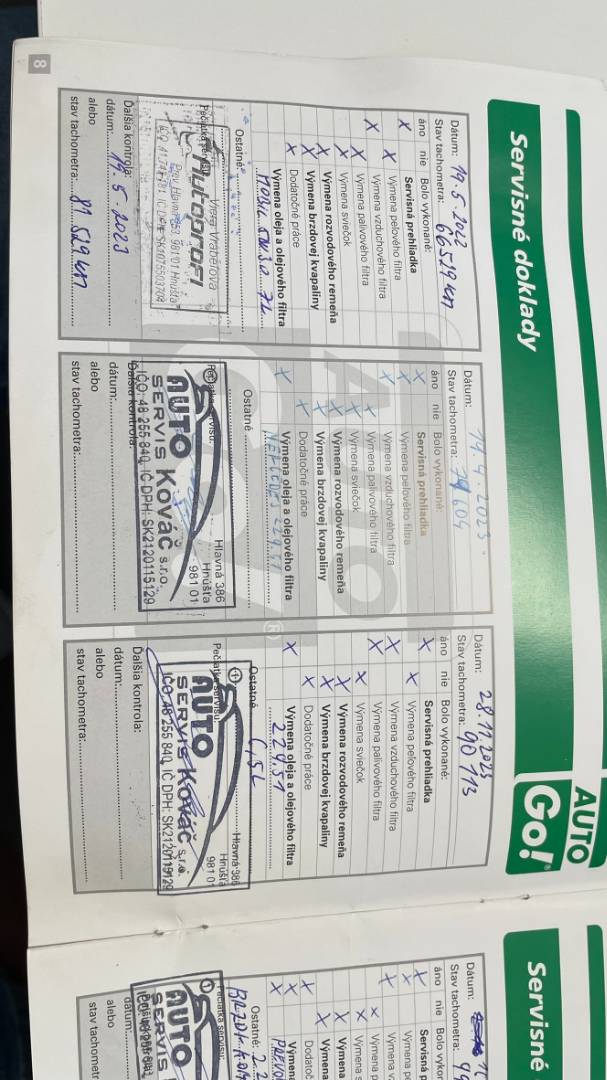 Servisné doklady
AUTO
Go!
Dátum: 19.5.2022
Stav tachometra: 66529 km
áno nie Bolo vykonané:
X Servisná prehliadka
X Výmena peľového filtra
X Výmena vzduchového filtra
X Výmena palivového filtra
X Výmena sviečok
X Výmena rozvodového remeňa
X Výmena brzdovej kvapaliny
X Dodatočné práce
X Výmena oleja a olejového filtra
Ostatné:
Pečiatka servisu:
Autoprofi
Ďalšia kontrola:
dátum: 19.5.2023
alebo
stav tachometra: 81 529 km
Dátum: 14.4.2023.
Stav tachometra: 79604
áno nie Bolo vykonané:
X Servisná prehliadka
X Výmena peľového filtra
X Výmena vzduchového filtra
X Výmena palivového filtra
X Výmena sviečok
X Výmena rozvodového remeňa
X Výmena brzdovej kvapaliny
X Dodatočné práce
X Výmena oleja a olejového filtra
MERCEDES 229.51
Ostatné
Pečiatka servisu:
AUTO
SERVIS Kováč s.r.o.
Hlavná 386
Hnúšťa
981 01
IČO: 48 255 840, IČ DPH: SK2120115129
Ďalšia kontrola:
dátum:
alebo
stav tachometra:
Dátum: 28.11.2023
Stav tachometra: 90 113
áno nie Bolo vykonané:
X Servisná prehliadka
X Výmena peľového filtra
X Výmena vzduchového filtra
X Výmena palivového filtra
X Výmena sviečok
X Výmena rozvodového remeňa
X Výmena brzdovej kvapaliny
X Dodatočné práce
X Výmena oleja a olejového filtra
229.51
Ostatné 6,5L
Pečiatka servisu:
AUTO
SERVIS Kováč s.r.o.
Hlavná 386
Hnúšťa
981 01
IČO: 48 255 840, IČ DPH: SK2120115129
Ďalšia kontrola:
dátum:
alebo
stav tachometra:
8
Servisné
Dátum:
Stav tachometra:
áno nie Bolo vykon
Servisná p
Výmena pe
Výmena v
Výmena p
Výmena s
Výmena
Výmena
Dodatoč
Výmena
Ostatné:
Pečiatka servisu:
AUTO
dátum:
alebo
stav tachometr